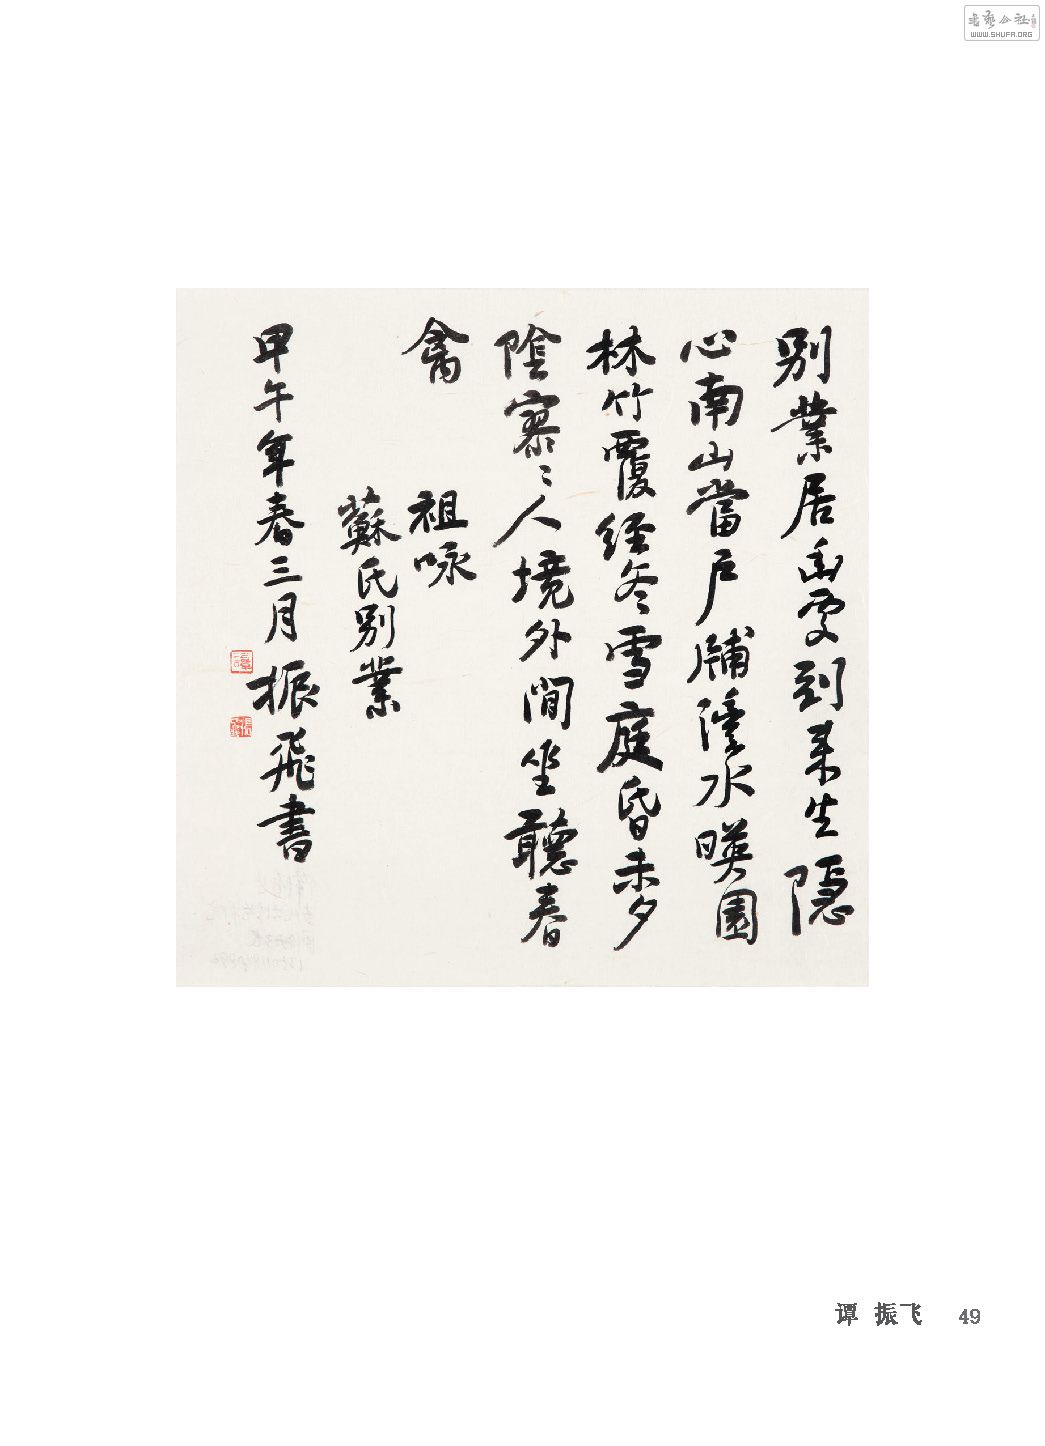 别業居幽处到来生隐
心南山當户牖灃水暎園
林竹覆经冬雪庭昏未夕
陰寥〻人境外閒坐聽春
禽 祖咏
蘇氏别業
甲午年春三月振飛書
谭振飞 49
WWW.SHUFA.ORG